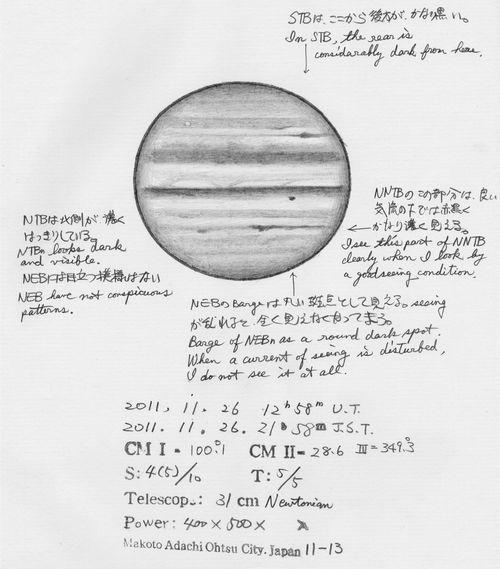 STBは、ここから後方が、かなり黒い。
In STB, the rear is
considarably dark from heas.
NTBは北側が濃く
はっきりしている。
NTBn loops dark
and visible.
NEBには目立つ模様はない
NEB have not conspicuous
patterns.
NNTBのこの部分は、良い
気流の下では赤黒く
かなり濃く見える。
I see this part of NNTB
clearly when I look by
a good seeing condition.
NEBn Bargeは丸い斑点として見える。seeing
が乱れると、全く見えなくなってしまう。
Barge of NEBn as a round dark spot.
When a current of seeing is disturbed,
I do not see it at all.
2011. 11. 26 12h 58m U.T.
2011. 11. 26. 21h 58m J.S.T.
CM I = 100.°1 CM II = 28.6 III = 349.°3
S: 4(5)/10 T: 5/5
Telescop.: 31 cm Newtonian
Power: 400× 500×
Makoto Adachi Ohtsu City. Japan 11-13